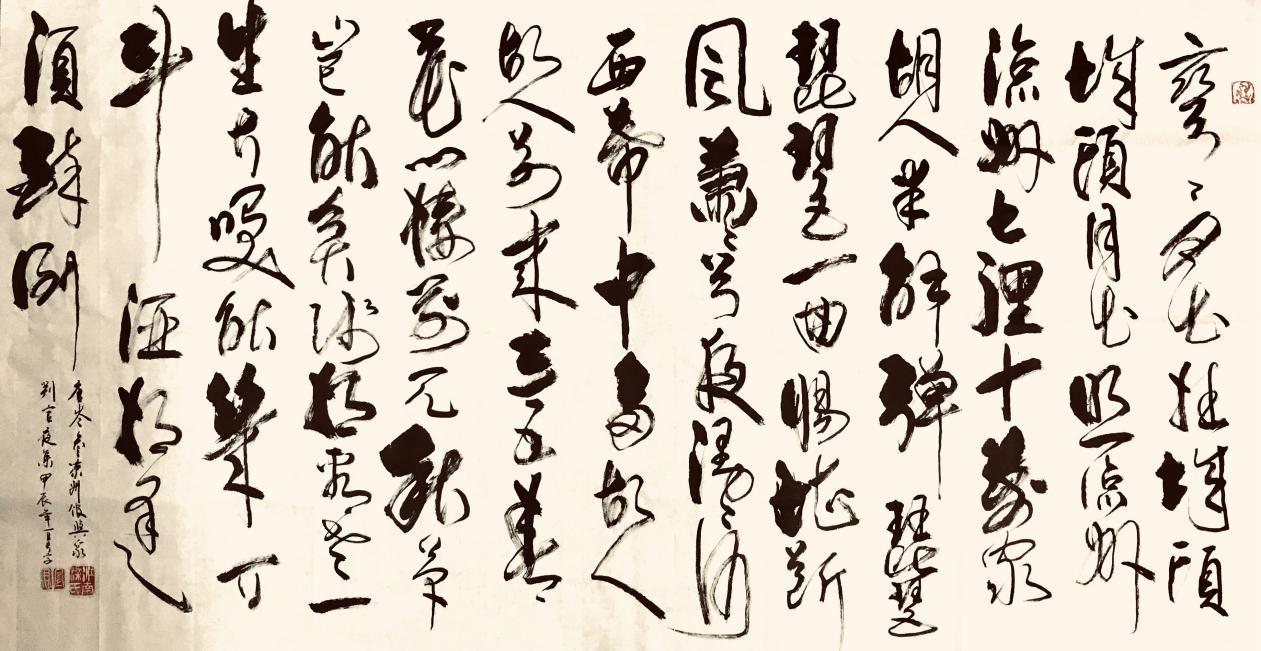 彎々月出挂城頭
城頭月出照涼州
涼州七里十萬家
胡人半解彈琵琶
琵琶一曲腸堪斷
風蕭々兮夜漫々河
西幕中多故人
故人別來三五春
花門樓前見秋草
豈能貧賤相看老一
生大咲能幾回
斗酒相逢
須醉倒
唐岑參涼州館與眾
判官夜集甲辰年